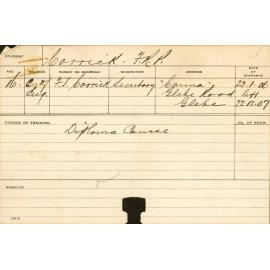 STUDENT Corrick. F.R.P.
AGE COURSE PARENT OR GUARDIAN OCCUPATION ADDRESS DATE OF ENTRANCE
16 F.J. Corrick Secretary "Conna" 23.1.06
Eng. Glebe Road left
Glebe 22.12.07
COURSE OF TRAINING NO. OF ROOM
Diploma Course
RESULTS